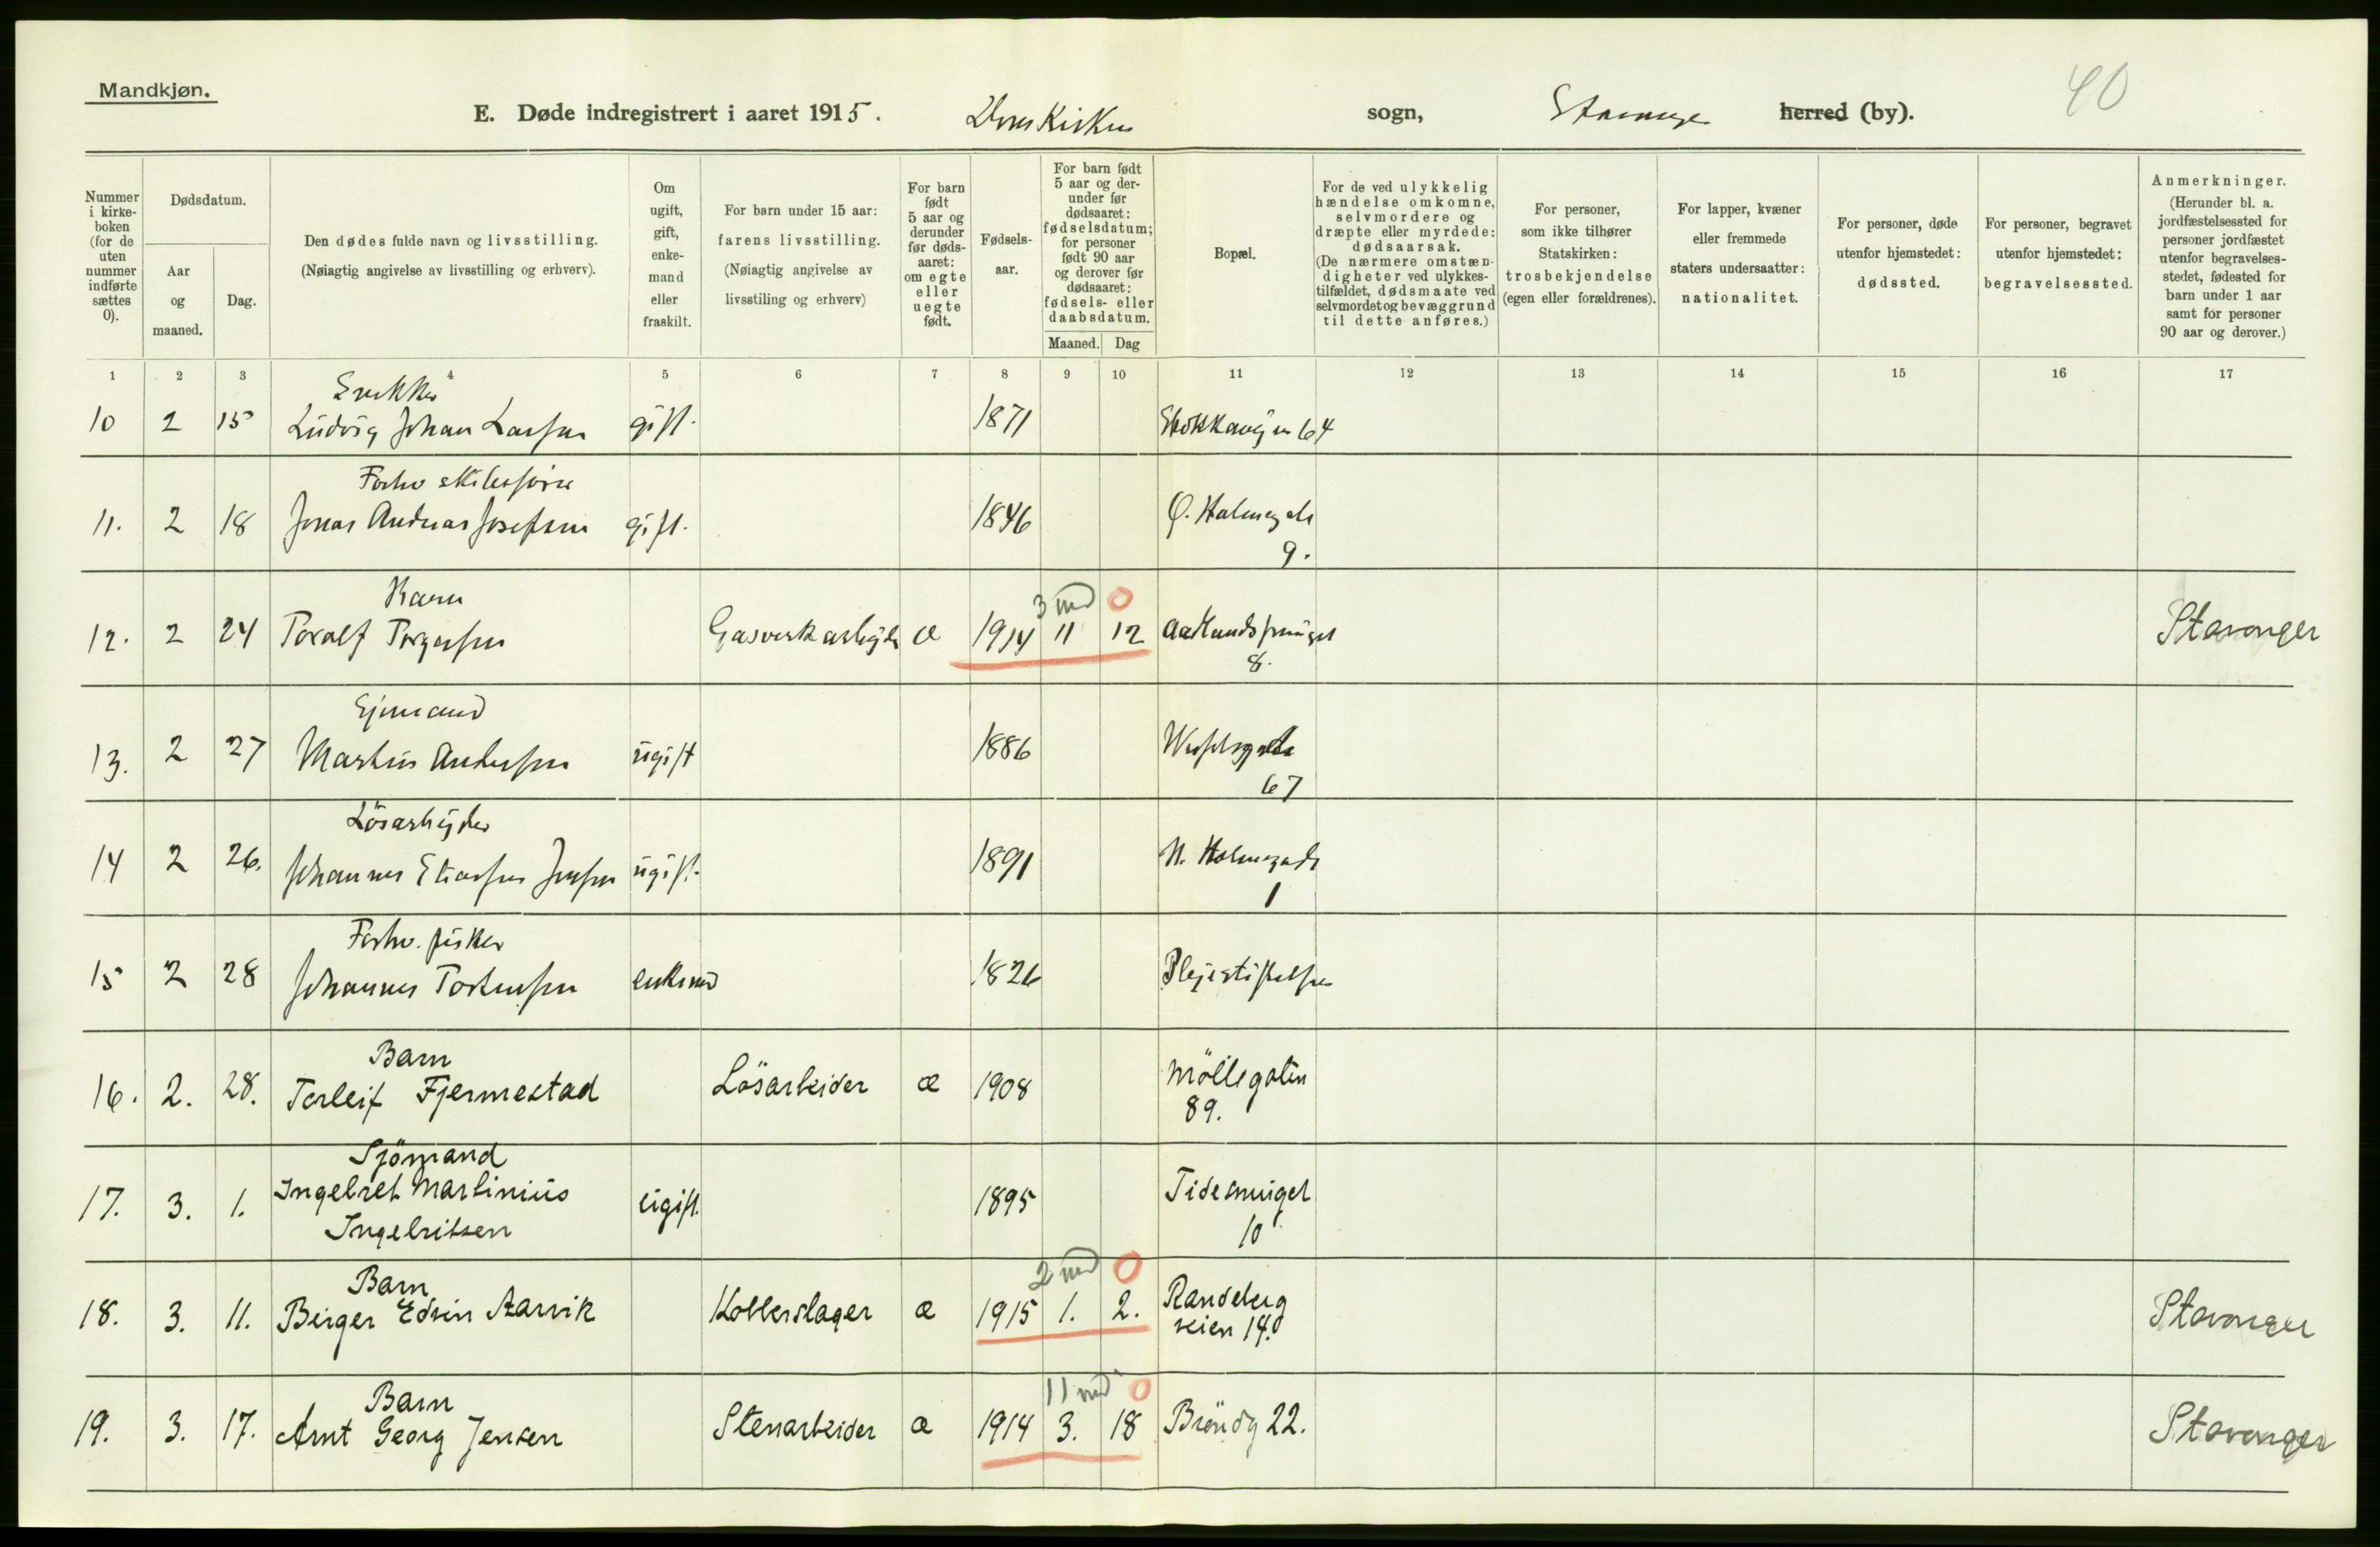 Mandkjøn.
E. Døde indregistrert i aaret 1915. Domkirken sogn, Stavanger herred (by).
40
Nummer i kirkeboken (for de uten nummer indførte sættes 0).
Dødsdatum.
Aar og maaned.
Dag.
Den dødes fulde navn og livsstilling.
(Nøiagtig angivelse av livsstilling og erhverv).
Om ugift, gift, enkemand eller fraskilt.
For barn under 15 aar: farens livsstilling.
(Nøiagtig angivelse av livsstiling og erhverv)
For barn født 5 aar og derunder før dødsaaret: om egte eller uegte født.
Fødselsaar.
For barn født 5 aar og derunder før dødsaaret: fødselsdatum; for personer født 90 aar og derover før dødsaaret: fødsels- eller daabsdatum.
Maaned. Dag
Bopæl.
For de ved ulykkelig hændelse omkomne, selvmordere og dræpte eller myrdede: dødsaarsak.
(De nærmere omstændigheter ved ulykkestilfældet, dødsmaate ved selvmordet og bevæggrund til dette anføres.)
For personer, som ikke tilhører Statskirken: trosbekjendelse (egen eller forældrenes).
For lapper, kvæner eller fremmede staters undersaatter: nationalitet.
For personer, døde utenfor hjemstedet: dødssted.
For personer, begravet utenfor hjemstedet: begravelsessted.
Anmerkninger.
(Herunder bl. a. jordfæstelsessted for personer jordfæstet utenfor begravelsesstedet, fødested for barn under 1 aar samt for personer 90 aar og derover.)
1 2 3 4 5 6 7 8 9 10 11 12 13 14 15 16 17
Snekker
10 2 15 Ludvig Johan Larsen gift. 1871 Stokkaveien 64
Forhv skibsfører
11. 2 18 Jonas Andreas Josefsen gift. 1846 Ø. Holmegate
9.
Barn 3 md 0
12. 2 24 Toralf Torgersen Gasverkarbeider æ 1914 11 12 Stavanger
8.
13. 2 27 Martin Andersen ugift 1886 Wesselsgate
67
Lösarbeider
14 2 26. Johannes Eliassen Jensen ugift. 1891 N. Holmegade
1
Forhv. fisker
15 2 28 Johannes Torkensen enkemd 1826 Plejestiftelsen
Barn
16. 2. 28. Torleif Fjermestad Lösarbeider æ 1908 Möllegaten
89.
Sjömand
17. 3. 1. Ingebret Martinius ugift. 1895 Tidesmuget
Ingebritsen 10
Barn 2 md 0
18. 3. 11. Birger Edvin Aarvik Kobberslager æ 1915 1. 2. Randeberg Stavanger
veien 14.
Barn 11 md 0
19. 3. 17. Arnt Georg Jensen Stenarbeider æ 1914 3. 18 Bröndg 22. Stavanger